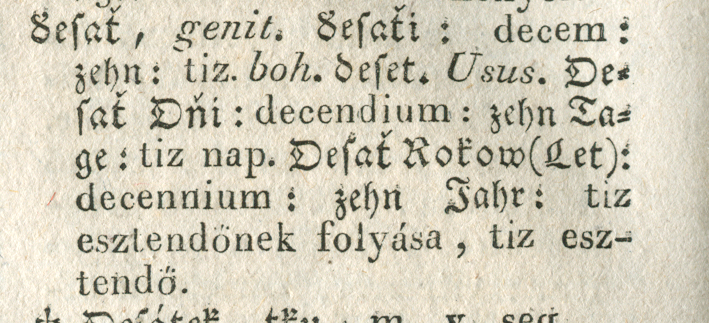 ďeſať, genit. ďeſaťi: decem:
zehn: tiz. boh. deſet. Usus. De-
ſať Dňi: decendium: zehn Ta-
ge: tiz nap. Deſať Rokow (Let):
decennium: zehn Jahr: tiz
esztendőnek folyása, tiz esz-
tendő.